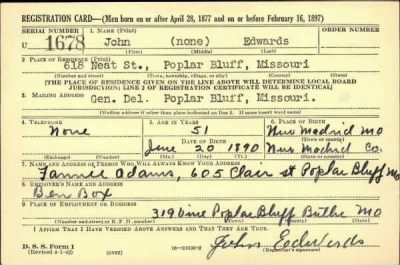 REGISTRATION CARD—(Men born on or after April 28, 1877 and on or before February 16, 1897)
SERIAL NUMBER 1. NAME (Print) ORDER NUMBER
U 1678 John (none) Edwards
(First) (Middle) (Last)
2. PLACE OF RESIDENCE (Print)
618 Neat St., Poplar Bluff, Missouri
(Number and street) (Town, township, village, or city) (County) (State)
[THE PLACE OF RESIDENCE GIVEN ON THE LINE ABOVE WILL DETERMINE LOCAL BOARD
JURISDICTION; LINE 2 OF REGISTRATION CERTIFICATE WILL BE IDENTICAL]
3. MAILING ADDRESS
Gen. Del. Poplar Bluff, Missouri.
[Mailing address if other than place indicated on line 2. If same insert word same]
4. TELEPHONE 5. AGE IN YEARS 6. PLACE OF BIRTH
None 51 New Madrid Mo
DATE OF BIRTH (Town or county)
June 20 1890 New Madrid Co.
(Exchange) (Number) (Mo.) (Day) (Yr.) (State or country)
7. NAME AND ADDRESS OF PERSON WHO WILL ALWAYS KNOW YOUR ADDRESS
Fannie Adams, 605 Clair st Poplar Bluff Mo
8. EMPLOYER'S NAME AND ADDRESS
Ben Box
9. PLACE OF EMPLOYMENT OR BUSINESS
319 Vine Poplar Bluff Butler Mo
(Number and street or R. F. D. number) (Town) (County) (State)
I AFFIRM THAT I HAVE VERIFIED ABOVE ANSWERS AND THAT THEY ARE TRUE.
D. S. S. Form 1
(Revised 4-1-42) (over) 16—21630-2
John Edwards